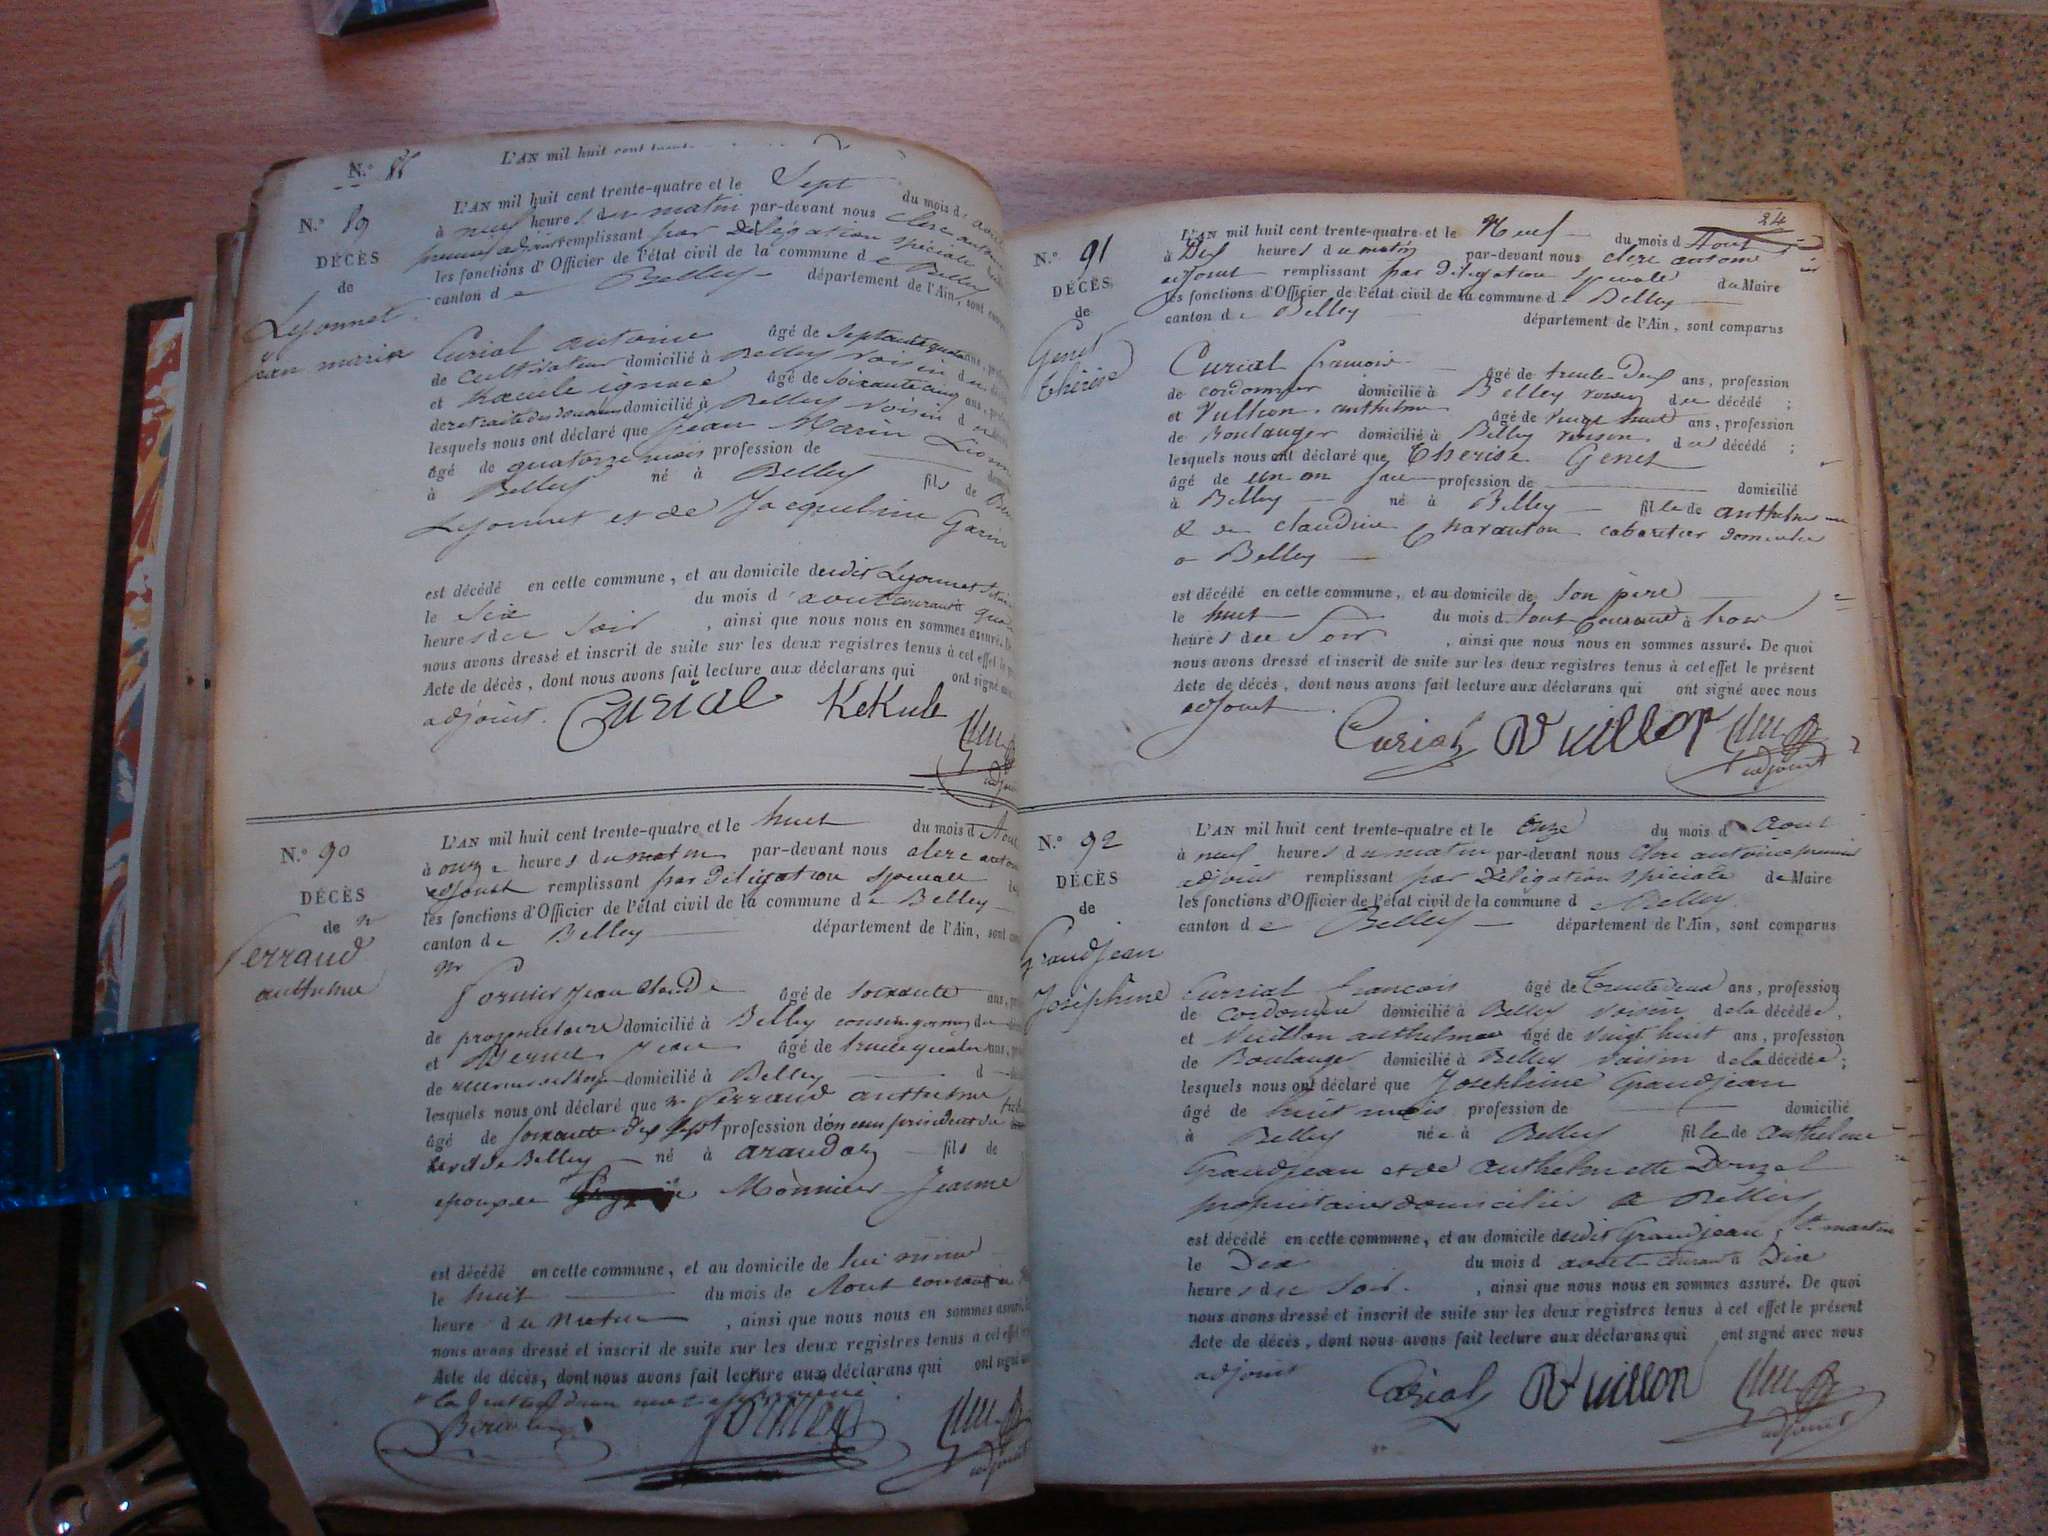 N.° 88
L'AN mil huit cent
N.° 89
DÉCÈS
de
Leyonnet
jean marin
L'AN mil huit cent trente-quatre et le Sept du mois d' août
à neuf heures du matin par-devant nous clerc antoine
premier adjoint remplissant par délégation spéciale
les fonctions d'Officier de l'état civil de la commune de Belley
canton de Belley département de l'Ain, sont
Curial antoine âgé de septante quatre ans,
de cultivateur domicilié à Belley voisin du
et Kacule ignace âgé de soixante cinq ans,
de retraité des douanes domicilié à Belley voisin d
lesquels nous ont déclaré que Jean Marin
âgé de quatorze mois profession de
à Belley né à Belley fils de
Leyonnet et de Jacqueline Garin
est décédé en cette commune, et au domicile dudit Leyonnet
le Six du mois d'aout courant à
heures du soir, ainsi que nous nous en sommes assuré.
nous avons dressé et inscrit de suite sur les deux registres tenus à cet effet le
Acte de décès, dont nous avons fait lecture aux déclarans qui ont signé
adjoint. Curial KeKule
adjoint
N.° 90
DÉCÈS
de Mr
Ferraud
anthelme
L'AN mil huit cent trente-quatre et le huit du mois d Aout
à onze heures du matin par-devant nous clerc antoine
adjoint remplissant par délégation spéciale
les fonctions d'Officier de l'état civil de la commune de Belley
canton de Belley département de l'Ain, sont
Mr Fornier Jean Claude âgé de soixante ans,
de propriétaire domicilié à Belley cousin germain du
et Jean âgé de trente quatre ans,
de domicilié à Belley d
lesquels nous ont déclaré que Mr Ferraud anthelme
âgé de soixante dix sept profession d'ancien président du
civil de Belley né à arandas fils de
époux de Monnier Jeanne
est décédé en cette commune, et au domicile de lui même
le huit du mois de Aout courant à
heure du matin, ainsi que nous nous en sommes assuré.
nous avons dressé et inscrit de suite sur les deux registres tenus à cet effet
Acte de décès, dont nous avons fait lecture aux déclarans qui ont signé
adjoint
24
N.° 91
DÉCÈS
de
Genet
thérèse
L'AN mil huit cent trente-quatre et le Neuf du mois d Aout
à Dix heures du matin par-devant nous clerc antoine
adjoint remplissant par délégation spéciale du Maire
les fonctions d'Officier de l'état civil de la commune de Belley
canton de Belley département de l'Ain, sont comparus
Curial françois âgé de trente Deux ans, profession
de cordonnier domicilié à Belley voisin du décédé ;
et Vullion anthelme âgé de vingt huit ans, profession
de Boulanger domicilié à Belley voisin du décédé ;
lesquels nous ont déclaré que Thérèse Genet
âgé de un an profession de domicilié
à Belley né à Belley fille de anthelme
& de claudine Charanton cabaretier domicilié
a Belley
est décédé en cette commune, et au domicile de son père
le huit du mois d aout courant à trois
heures du soir, ainsi que nous nous en sommes assuré. De quoi
nous avons dressé et inscrit de suite sur les deux registres tenus à cet effet le présent
Acte de décès, dont nous avons fait lecture aux déclarans qui ont signé avec nous
adjoint.
Curial Vuillon
adjoint
N.° 92
DÉCÈS
de
Grandjean
Joséphine
L'AN mil huit cent trente-quatre et le Onze du mois d Aout
à neuf heures du matin par-devant nous Clerc antoine premier
adjoint remplissant par délégation spéciale de Maire
les fonctions d'Officier de l'état civil de la commune de Belley
canton de Belley département de l'Ain, sont comparus
Curial francois âgé de Trente deux ans, profession
de cordonnier domicilié à Belley voisin de la décédée,
et Vuillon anthelme âgé de vingt huit ans, profession
de Boulanger domicilié à Belley voisin de la décédée ;
lesquels nous ont déclaré que Joséphine Grandjean
âgé de huit mois profession de domicilié
à Belley née à Belley fille de anthelme
Grandjean et de anthelmette Douzel
propriétaires domiciliés à Belley
est décédé en cette commune, et au domicile dudit Grandjean, St. martin
le Dix du mois d aout courant à Dix
heures du soir, ainsi que nous nous en sommes assuré. De quoi
nous avons dressé et inscrit de suite sur les deux registres tenus à cet effet le présent
Acte de décès, dont nous avons fait lecture aux déclarans qui ont signé avec nous
adjoint
Curial Vuillon
adjoint